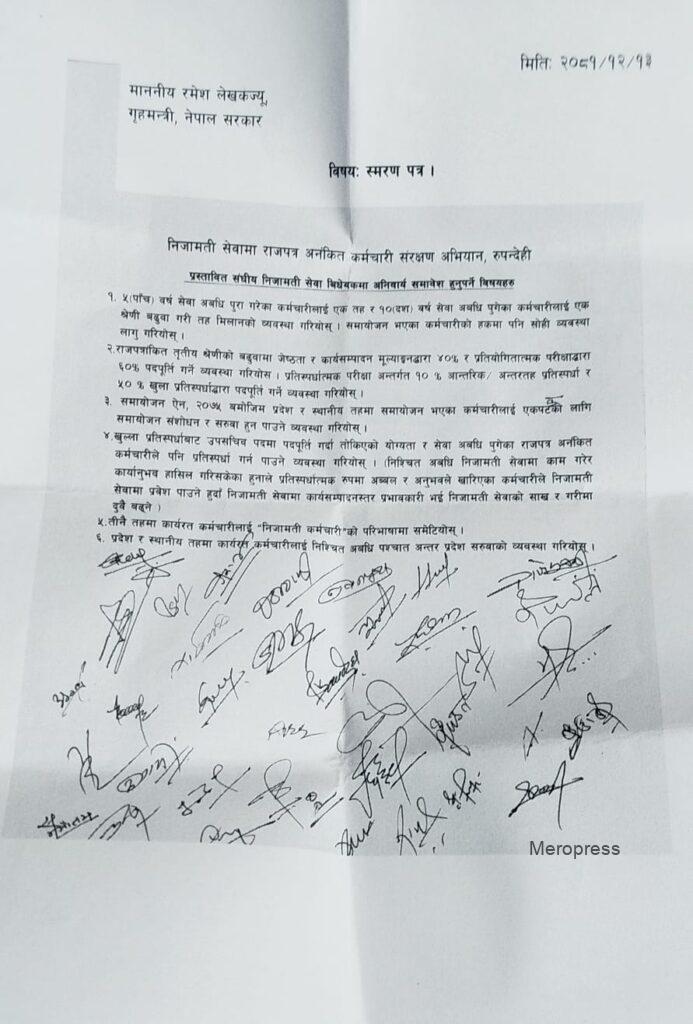 मितिः २०८१/१२/१३
माननीय रमेश लेखकज्यू,
गृहमन्त्री, नेपाल सरकार
विषयः स्मरण पत्र ।
निजामती सेवामा राजपत्र अनंकित कर्मचारी संरक्षण अभियान, रुपन्देही
प्रस्तावित संघीय निजामती सेवा बिधेयकमा अनिवार्य समावेश हुनुपर्ने बिषयहरु
१. ५(पाँच) वर्ष सेवा अबधि पुरा गरेका कर्मचारीलाई एक तह र १०(दश) बर्ष सेवा अबधि पुगेका कर्मचारीलाई एक
श्रेणी बढुवा गरी तह मिलानको ब्यवस्था गरियोस् । समायोजन भएका कर्मचारीको हकमा पनि सोही ब्यवस्था
लागु गरियोस् ।
२.राजपत्रांकित तृतीय श्रेणीको बढुवामा जेष्ठता र कार्यसम्पादन मूल्याङ्कनद्वारा ४०% र प्रतियोगितात्मक परीक्षाद्वारा
६०% पदपूर्ति गर्ने ब्यवस्था गरियोस । प्रतिस्पर्धात्मक परीक्षा अन्तर्गत १० % आन्तरिक/ अन्तरतह प्रतिस्पर्धा र
५० % खुला प्रतिस्पर्धाद्वारा पदपूर्ति गर्ने ब्यवस्था गरियोस् ।
३. समायोजन ऐन, २०७५ बमोजिम प्रदेश र स्थानीय तहमा समायोजन भएका कर्मचारीलाई एकपटकको लागि
समायोजन संशोधन र सरुवा हुन पाउने ब्यवस्था गरियोस् ।
४.खुल्ला प्रतिस्पर्धाबाट उपसचिव पदमा पदपूर्ति गर्दा तोकिएको योग्यता र सेवा अबधि पुगेका राजपत्र अनंकित
कर्मचारीले पनि प्रतिस्पर्धा गर्न पाउने ब्यवस्था गरियोस् । (निश्चित अबधि निजामती सेवामा काम गरेर
कार्यानुभव हासिल गरिसकेका हुनाले प्रतिस्पर्धात्मक रुपमा अब्बल र अनुभवले खारिएका कर्मचारीले निजामती
सेवामा प्रबेश पाउने हुदाँ निजामती सेवामा कार्यसम्पादनस्तर प्रभावकारी भई निजामती सेवाको साख र गरीमा
दुवै बढ्ने )
५.तीनै तहमा कार्यरत कर्मचारीलाई "निजामती कर्मचारी"को परिभाषामा समेटियोस् ।
६. प्रदेश र स्थानीय तहमा कार्यरत कर्मचारीलाई निश्चित अबधि पश्चात अन्तर प्रदेश सरुवाको ब्यवस्था गरियोस् ।
Meropress